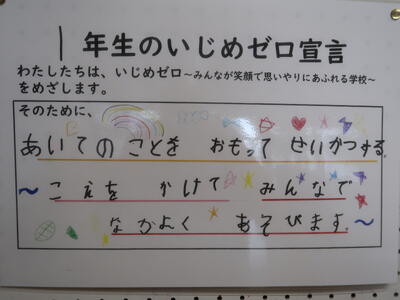 1年生のいじめゼロ宣言
わたしたちは、いじめゼロ～みんなが笑顔で思いやりにあふれる学校～
をめざします。
そのために、
あいてのことを おもって せいかつする。
～こえを かけて みんなで
なかよく あそびます。～